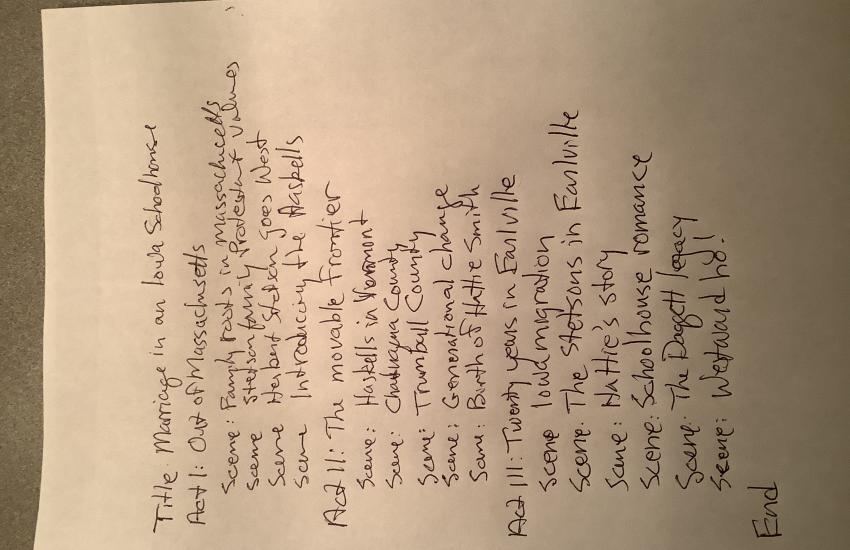 Title: Marriage in an Iowa Schoolhouse
Act I: Out of Massachusetts
Scene: Family roots in Massachusetts
Scene Stetson family Protestant values
Scene Herbert Stetson goes West
Scene Introducing the Haskells
Act II: The movable Frontier
Scene: Haskells in Vermont
Scene: Chautauqua County
Scene: Trumbull County
Scene: Generational change
Scene: Birth of Hattie Smith
Act III: Twenty years in Earlville
Scene Iowa migration
Scene: The Stetsons in Earlville
Scene: Hattie's story
Scene: Schoolhouse romance
Scene: The Daggett legacy
Scene: Westward ho!
End